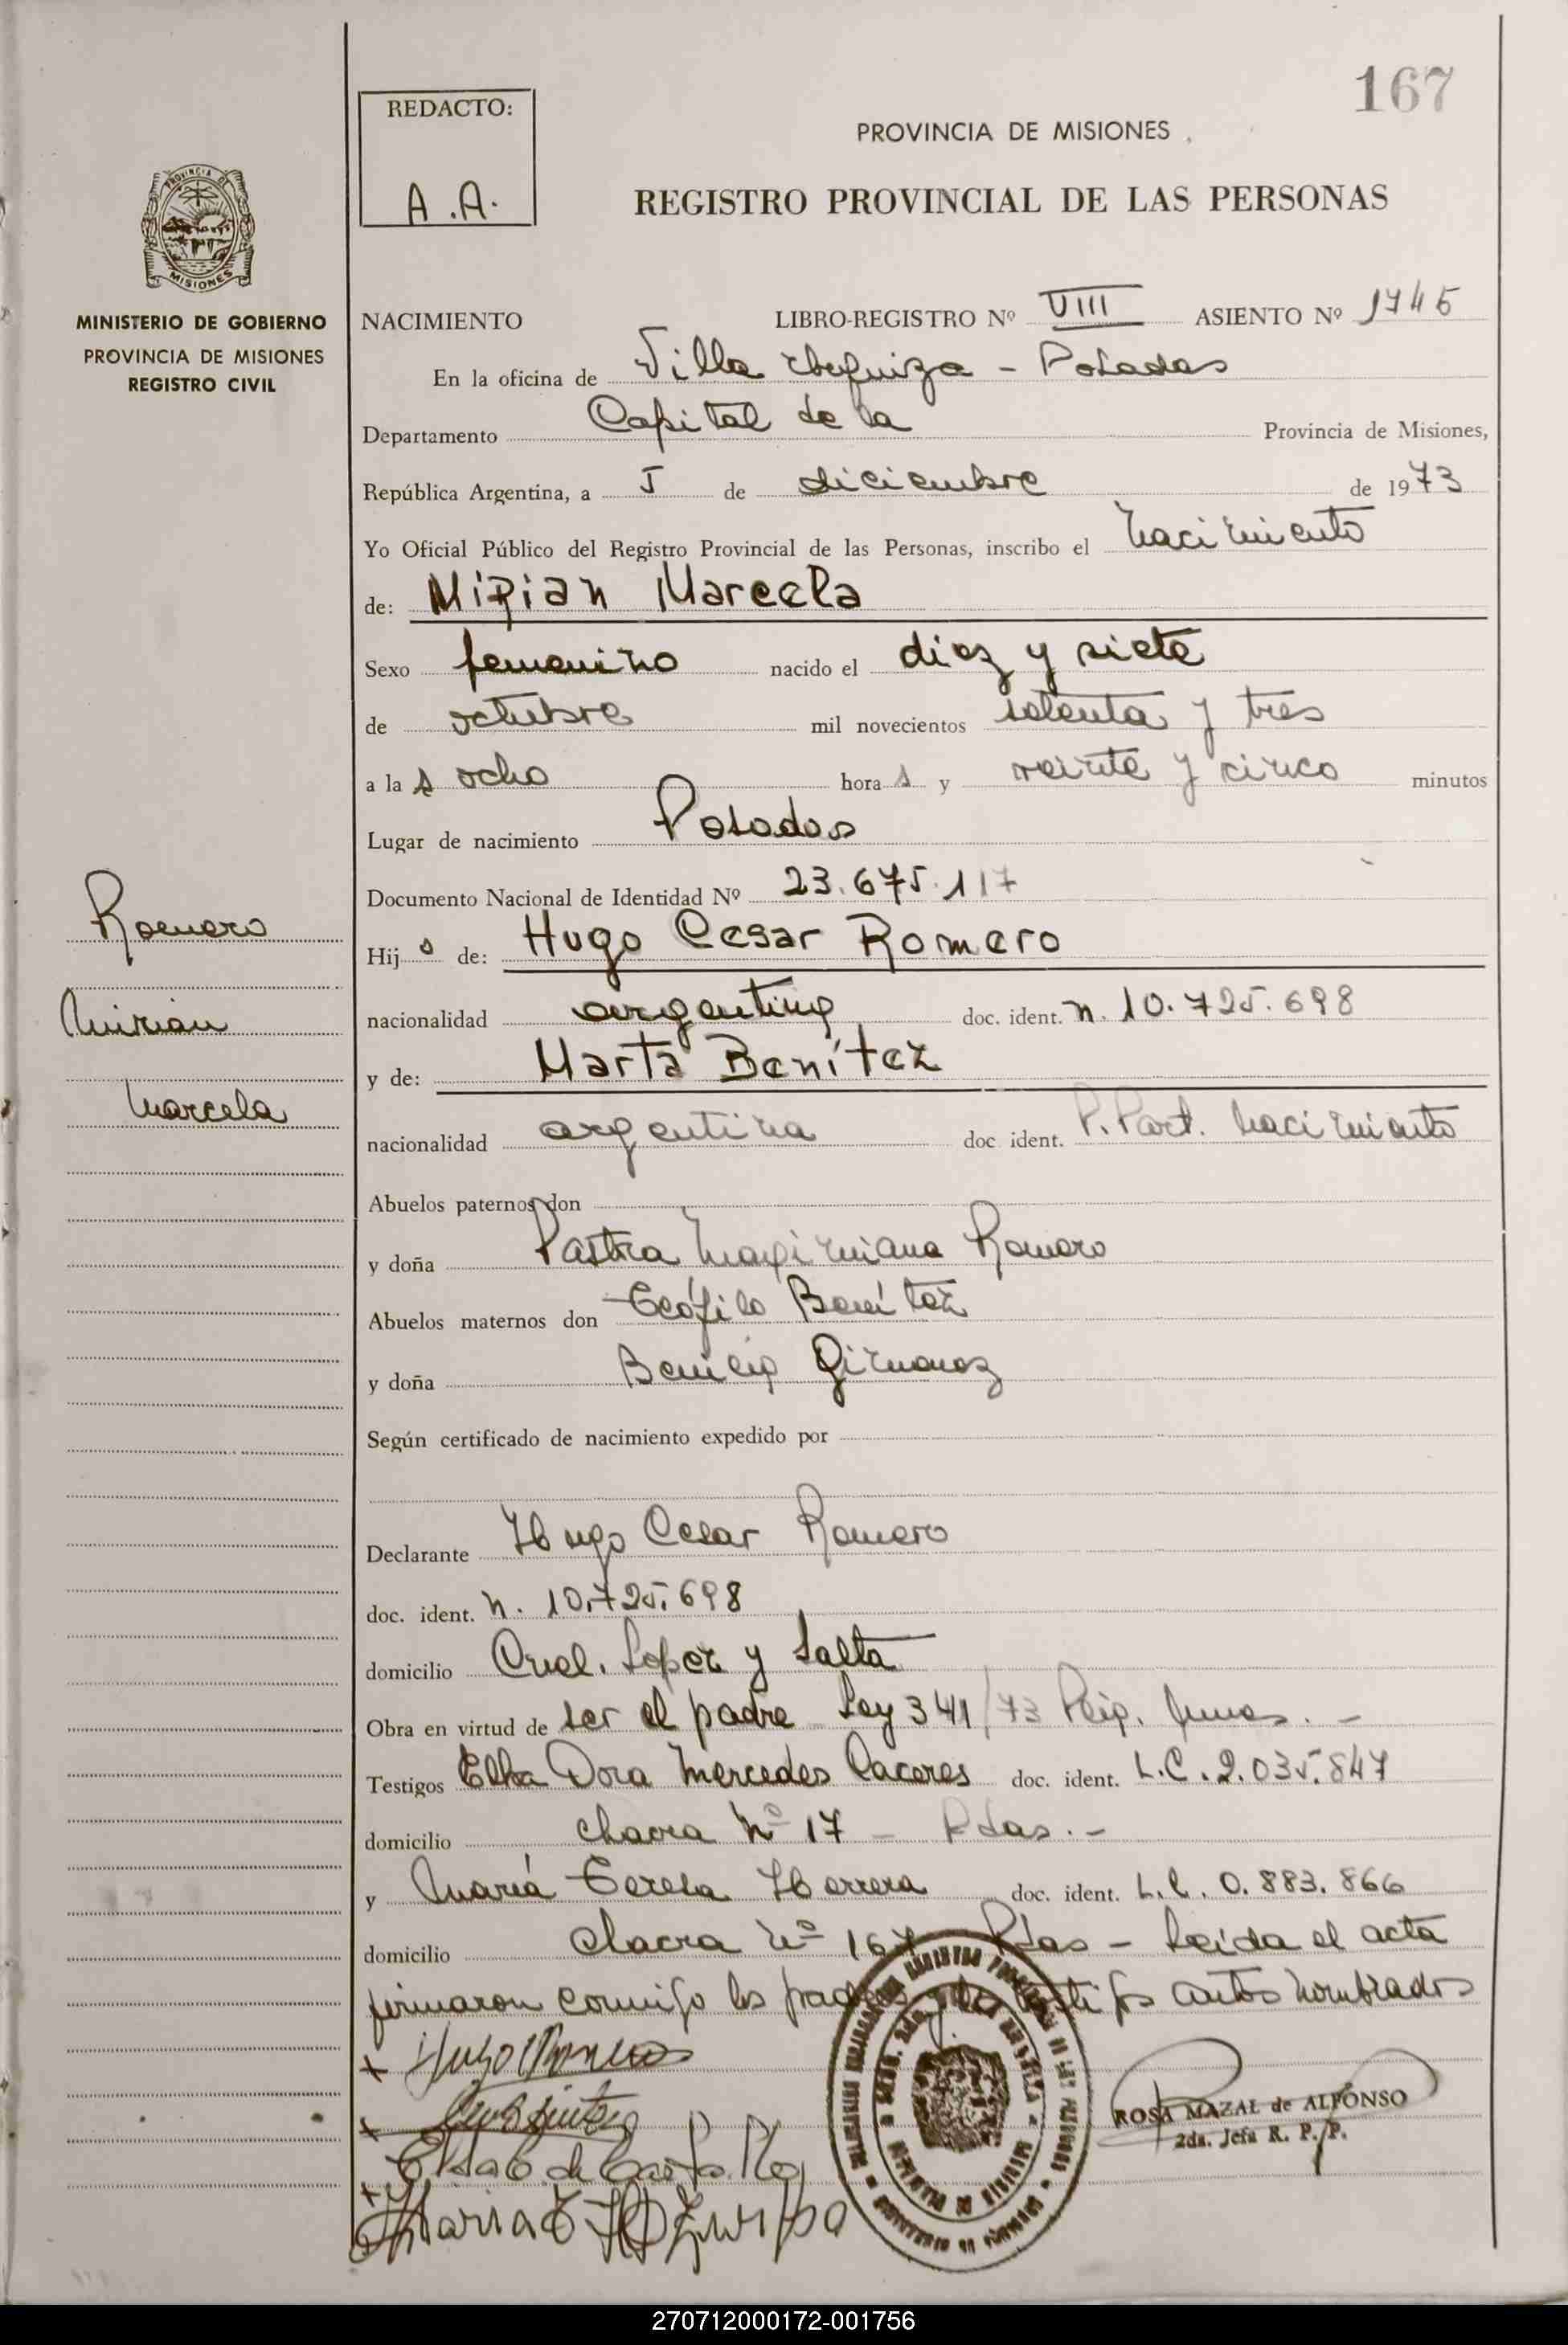 167
REDACTO:
A.A.
PROVINCIA DE MISIONES
REGISTRO PROVINCIAL DE LAS PERSONAS
MISIONES
MINISTERIO DE GOBIERNO
PROVINCIA DE MISIONES
REGISTRO CIVIL
NACIMIENTO LIBRO-REGISTRO Nº VIII ASIENTO Nº 1745
En la oficina de Villa Urquiza - Posadas
Departamento Capital de la Provincia de Misiones,
República Argentina, a 5 de diciembre de 1973
Yo Oficial Público del Registro Provincial de las Personas, inscribo el nacimiento
de: Mirian Marcela
Sexo femenino nacido el diez y siete
de octubre mil novecientos setenta y tres
a las ocho horas y veinte y cinco minutos
Lugar de nacimiento Posadas
Documento Nacional de Identidad Nº 23.675.117
Hija de: Hugo Cesar Romero
nacionalidad argentina doc. ident. n. 10.725.698
y de: Marta Benítez
nacionalidad argentina doc. ident. P. Part. nacimiento
Abuelos paternos don
y doña Pastora Maximiana Romero
Abuelos maternos don Teófilo Benítez
y doña Benicia Gimenez
Según certificado de nacimiento expedido por
Declarante Hugo Cesar Romero
doc. ident. n. 10.725.698
domicilio Cnel. Lopez y Salta
Obra en virtud de ser el padre Ley 341/73
Testigos Elba Dora Mercedes Caceres doc. ident. L.C. 2.035.847
domicilio chacra nº 17 - Pdas. -
y María Teresa Herrera doc. ident. L.C. 0.883.866
domicilio chacra nº 167 Pdas - Leida el acta
firmaron conmigo los padres y los testigos antes nombrados
Romero
Mirian
Marcela
ROSA MAZAL de ALFONSO
2da. Jefa R. P. P.
270712000172-001756